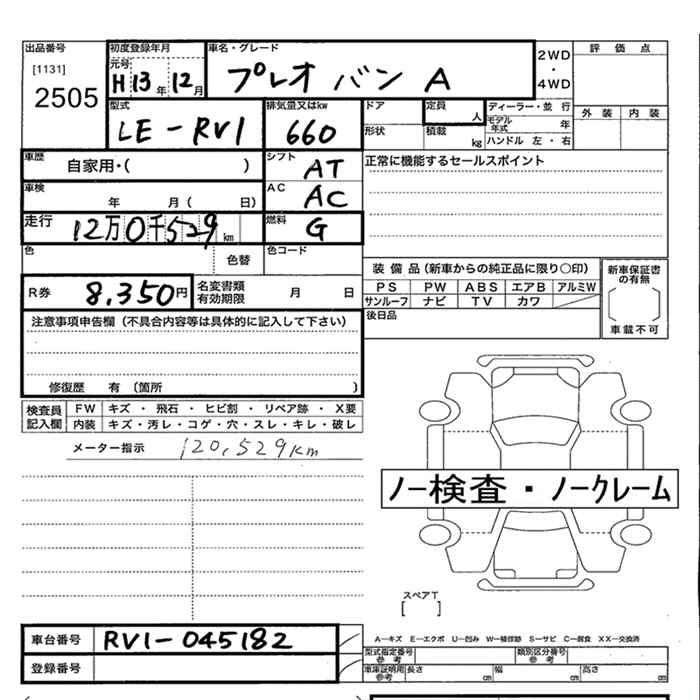 出品番号 初度登録年月 車名・グレード 2WD ・ 4WD 評価点
[1131] 元号
2505 H13年12月 プレオ バン A
型式 排気量又はkw ドア 定員 人 ディーラー・並行 外装 内装
LE-RV1 660 形状 積載 kg モデル年式 年
ハンドル 左・右
車歴 自家用・( ) シフト AT 正常に機能するセールスポイント
車検 年 月( 日) AC AC
走行 12万0千529km 燃料 G
色 色替 色コード
装備品(新車からの純正品に限り〇印) 新車保証書の有無
R券 8,350円 名変書類有効期限 月 日 PS PW ABS エアB アルミW
サンルーフ ナビ TV カワ
後日品 車載不可
注意事項申告欄(不具合内容等は具体的に記入して下さい)
修復歴 有 〔箇所 〕
検査員記入欄 FW キズ・飛石・ヒビ割・リペア跡・X要
内装 キズ・汚レ・コゲ・穴・スレ・キレ・破レ
メーター指示 120,529km
ノー検査・ノークレーム
スペアT
[ ]
車台番号 RV1-045182 A―キズ E―エクボ U―凹み W―補修跡 S―サビ C―腐食 XX―交換済
型式指定番号 参考 類別区分番号 参考
登録番号 車庫証明用 参考 長さ cm 幅 cm 高さ cm